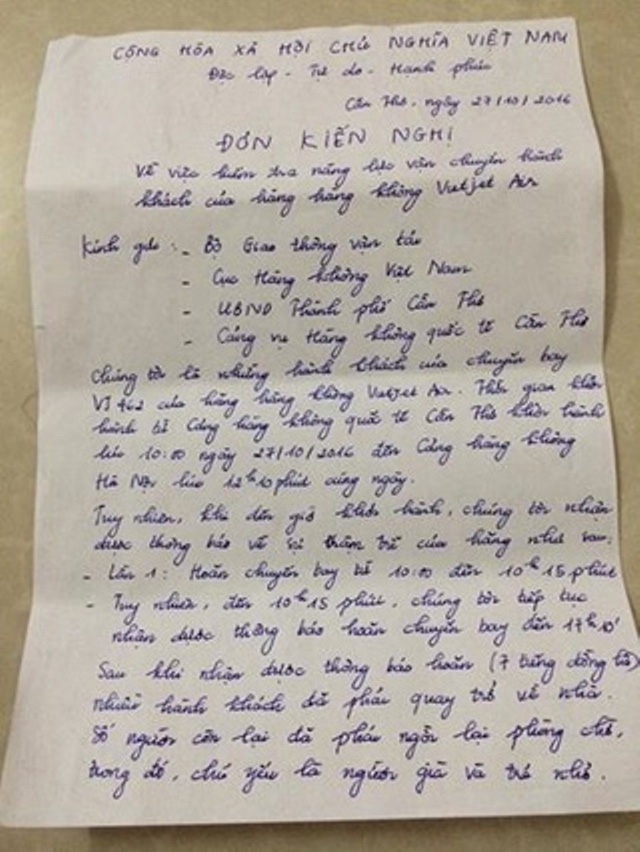 CỘNG HÒA XÃ HỘI CHỦ NGHĨA VIỆT NAM
Độc lập - Tự do - Hạnh phúc
Cần Thơ, ngày 27/10/2016
ĐƠN KIẾN NGHỊ
Về việc kiểm tra năng lực vận chuyển hành
khách của hãng hàng không Vietjet Air
Kính gửi: - Bộ Giao thông vận tải
- Cục Hàng không Việt Nam
- UBND Thành phố Cần Thơ
- Cảng vụ Hàng không quốc tế Cần Thơ
Chúng tôi là những hành khách của chuyến bay
VJ 462 của hãng hàng không Vietjet Air. Thời gian khởi
hành từ Cảng hàng không quốc tế Cần Thơ khởi hành
lúc 10:00 ngày 27/10/2016 đến Cảng hàng không
Hà Nội lúc 12h10 phút cùng ngày.
Tuy nhiên, khi đến giờ khởi hành, chúng tôi nhận
được thông báo về sự chậm trễ của hãng như sau:
- Lần 1: Hoãn chuyến bay từ 10:00 đến 10h15 phút
- Tuy nhiên, đến 10h15 phút, chúng tôi tiếp tục
nhận được thông báo hoãn chuyến bay đến 17h10'
Sau khi nhận được thông báo hoãn (7 tiếng đồng hồ)
nhiều hành khách đã phải quay trở về nhà.
Số người còn lại đã phải ngồi lại phòng chờ,
trong đó, chủ yếu là người già và trẻ nhỏ.